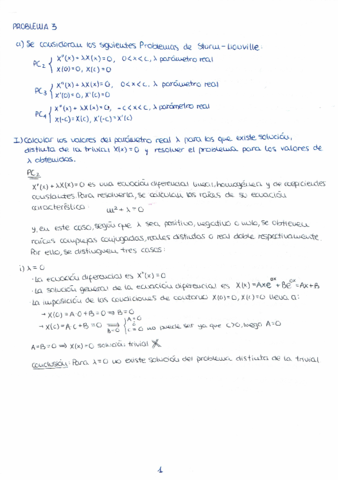 PROBLEMA 3
a) Se consideran los siguientes Problemas de Sturm-Liouville:
PC₂ { X''(x) + λX(x) = 0, 0 < x < c, λ parámetro real
X(0) = 0, X(c) = 0
PC₃ { X''(x) + λX(x) = 0, 0 < x < c, λ parámetro real
X'(0) = 0, X'(c) = 0
PC₄ { X''(x) + λX(x) = 0, -c < x < c, λ parámetro real
X(-c) = X(c), X'(-c) = X'(c)
I) Calcular los valores del parámetro real λ para los que existe solución,
distinta de la trivial X(x) = 0 y resolver el problema para los valores de
λ obtenidos.
PC₂
X''(x) + λX(x) = 0 es una ecuación diferencial lineal, homogénea y de coeficientes
constantes. Para resolverla, se calculan las raíces de su ecuación
característica:
m² + λ = 0
y, en este caso, según que λ sea positivo, negativo o nulo, se obtienen
raíces complejas conjugadas, reales distintas o real doble respectivamente.
Por ello, se distinguen tres casos:
i) λ = 0
· La ecuación diferencial es X''(x) = 0
· La solución general de la ecuación diferencial es X(x) = Axe⁰ˣ + Be⁰ˣ = Ax + B
La imposición de las condiciones de contorno X(0) = 0, X(c) = 0 lleva a:
→ X(0) = A·0 + B = 0 ⇒ B = 0
→ X(c) = A·c + B = 0 ⇒ B = 0 { A = 0 ó c = 0 no puede ser ya que c > 0, luego A = 0
A = B = 0 ⇒ X(x) = 0 solución trivial X
Conclusión: Para λ = 0 no existe solución del problema distinta de la trivial
1